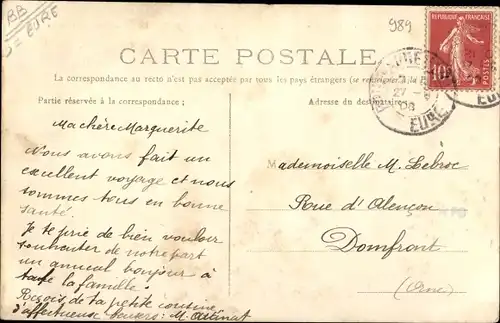 BB
= EURE
989
RÉPUBLIQUE FRANÇAISE
10
POSTES
CARTE POSTALE
La correspondance au recto n'est pas acceptée par tous les pays étrangers (se renseigner à la
Partie réservée à la correspondance.
Adresse du destinataire
27 - 8
08
EURE
Ma chère Marguerite
Nous avons fait un
excellent voyage et nous
sommes tous en bonne
santé.
Je te prie de bien vouloir
souhaiter de notre part
un amical bonjour à
toute la famille.
Reçois, de ta petite cousine
d'affectueux baisers: M.
Mademoiselle M. Lebroc
Rue d'Alençon
Domfront
(Orne)